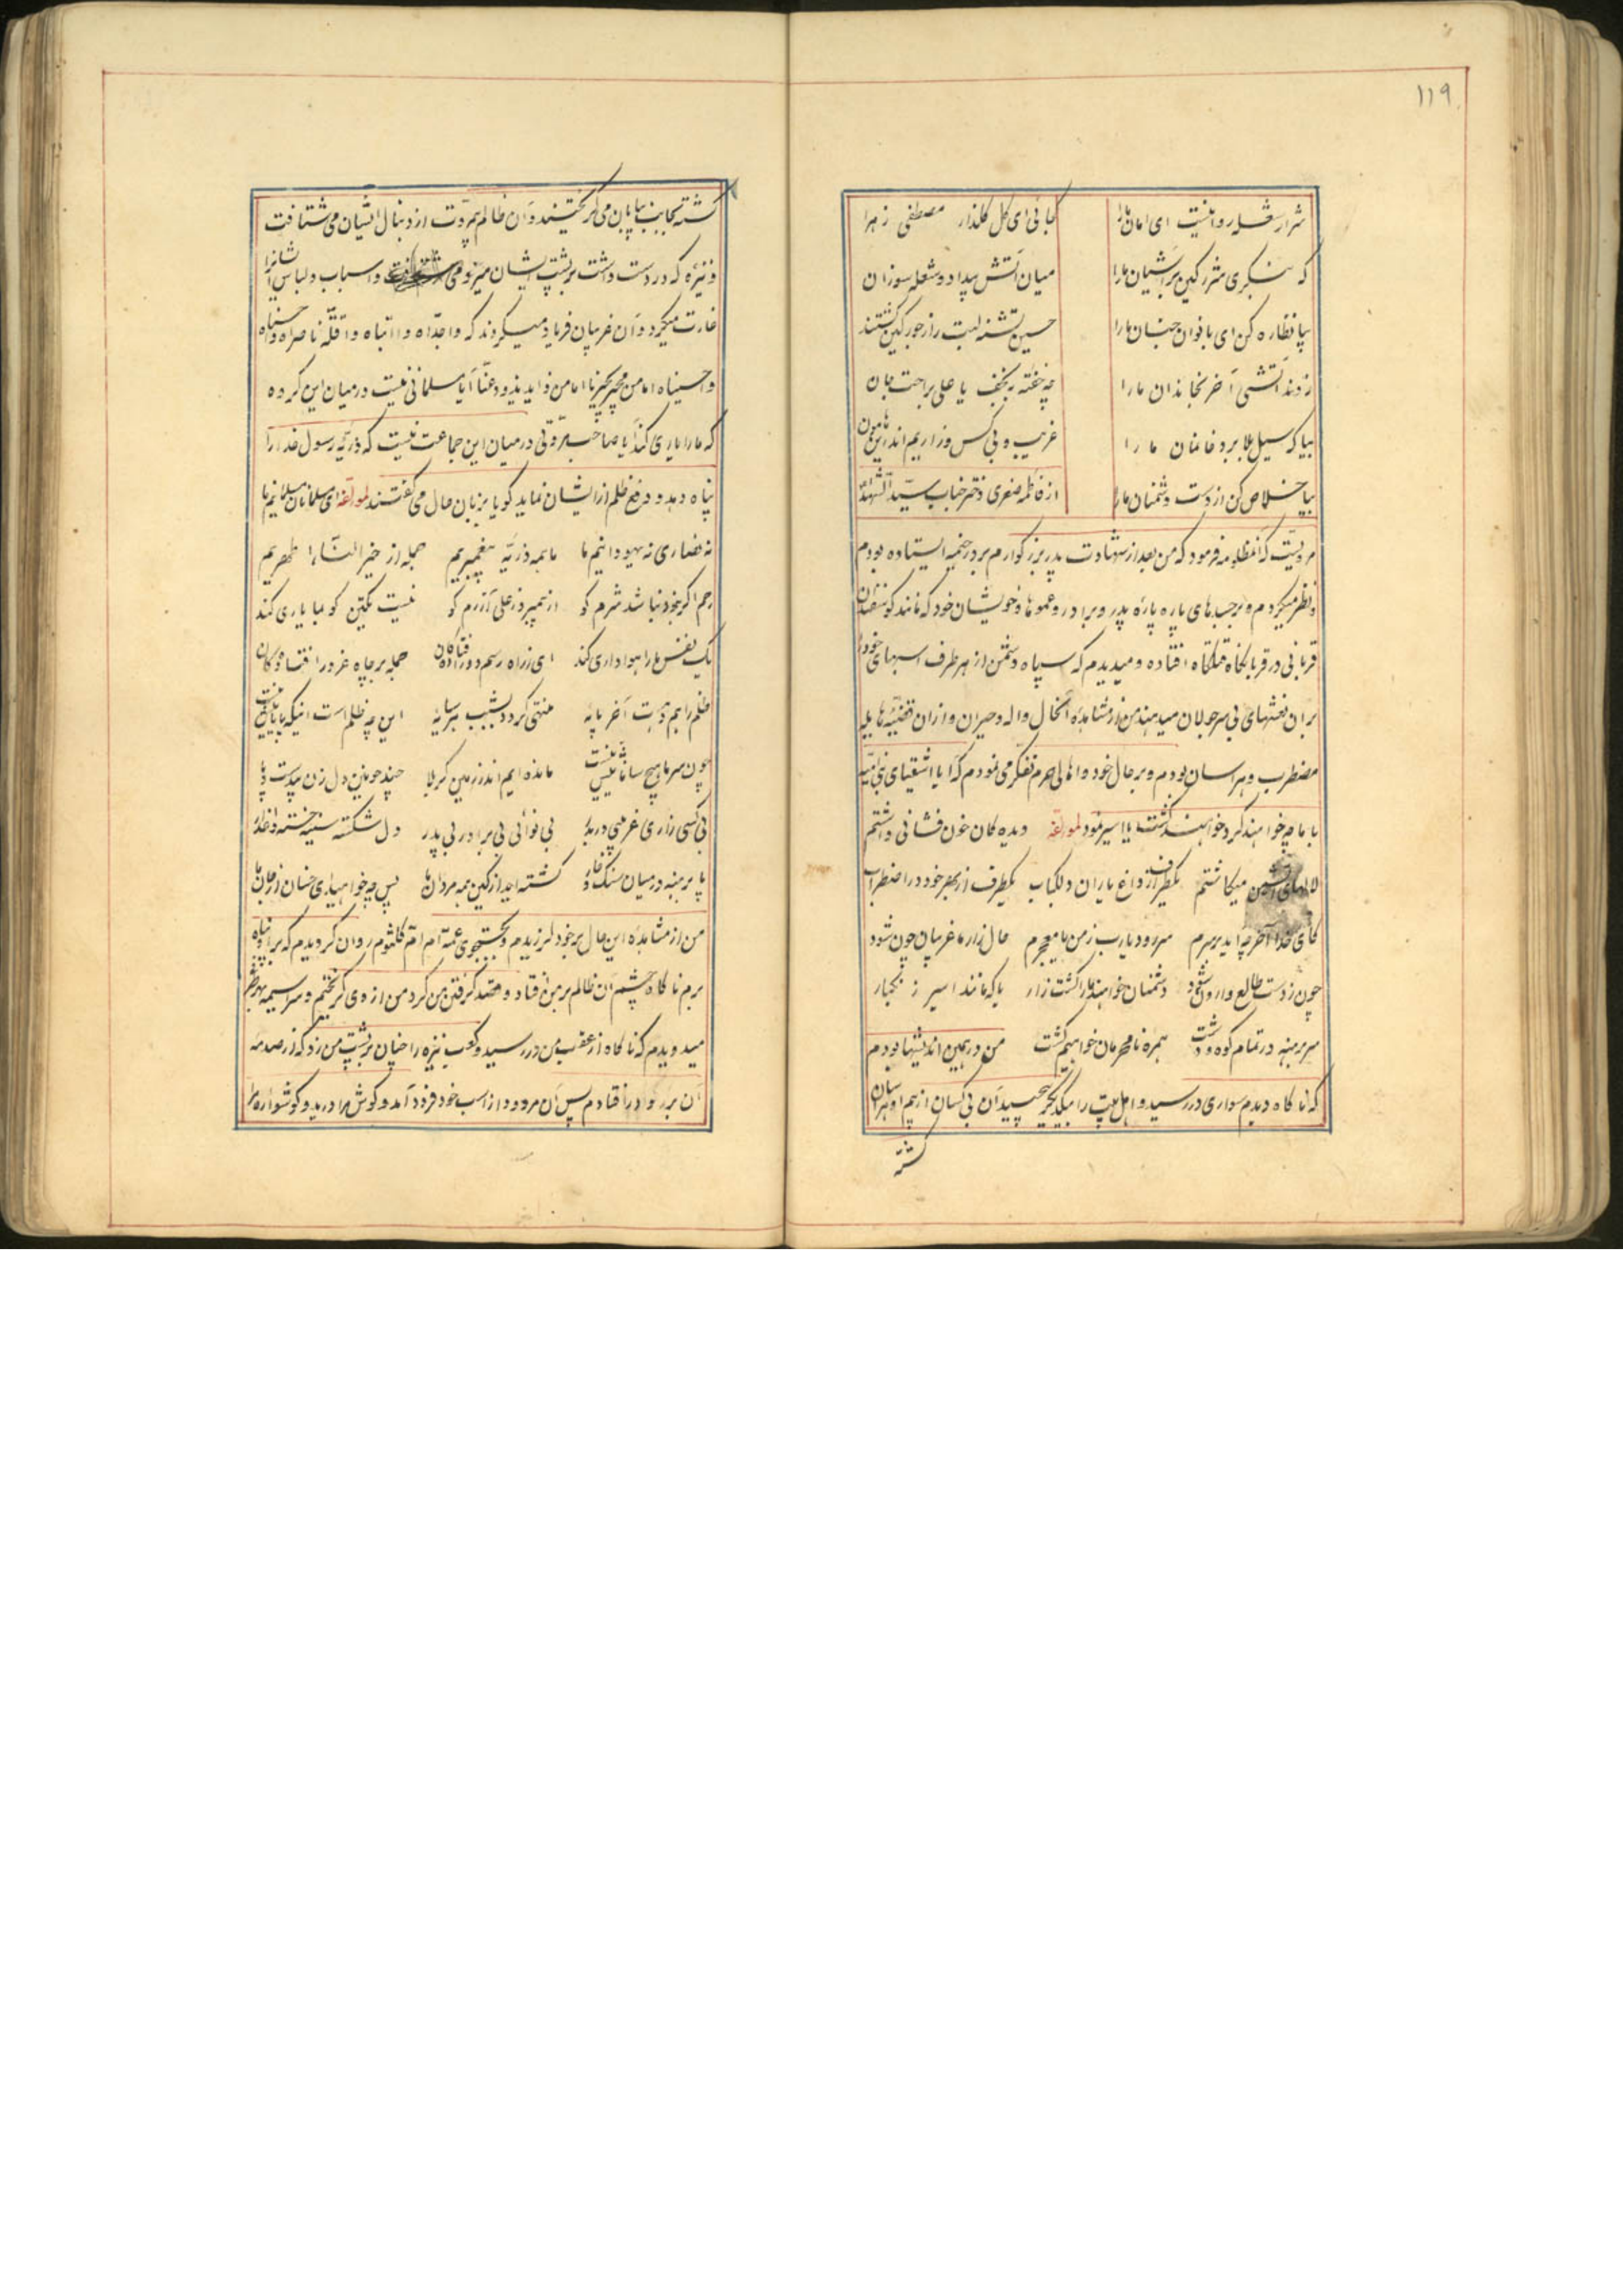 ۱۱۹
کجائی ای گل گلذار مصطفی زهرا شرار شعله روا نیست ای امان ما را
میان آتش بیداد و شعله سوزان که بنگری شرر کین بر آشیان ما را
حسین تشنه لبت را ز جور کین کشتند بیا نظاره کن ای بانوان جنان ما را
چه خفته بنجف یا علی براحت جان زدند آتشی آخر بخاندان ما را
غریب و بی کس و زاریم اندر این هامون بیا که سیل بلا برد خانمان ما را
از فاطمه صغری دختر جناب سید الشهدا بیا خلاص کن از دست دشمنان ما را
مرویست که آنمظلومه فرمود که من بعد از شهادت پدر بزرگوارم بر در خیمه ایستاده بودم
و نظر میکردم بر جسدهای پاره پاره پدر و برادر و عموها و خویشان خود که مانند گوسفندان
قربانی در قربانگاه قتلگاه افتاده و میدیدم که سپاه دشمن از هر طرف اسبهای خود را
بر آن نعشهای بی سر جولان میدهند من از مشاهده آنحال واله و حیران و از آن قضیه هایله
مضطرب و هراسان بودم و بر حال خود و اهالی حرم تفکر می نمودم که آیا اشقیای بنی امیه
با ما چه خواهند کرد خواهند کشت یا اسیر نمود لمولفه دیده کان خون فشانی داشتم
لالهای آتشین میکاشتم یکطرف از داغ یاران دلکباب یکطرف از بهر خود در اضطراب
کای خدا آخر چه آید بر سرم میرود یا رب ز من یا معجرم حال زار ما غریبان چون شود
چون ز دست طالع وارون شود دشمنان خواهند ما را کشت زار یا که مانند اسیر زنگبار
سر برهنه در تمام کوه و دشت همره نامحرمان خواهیم گشت من در همین اندیشها بودم
که ناگاه دیدم سواری در رسید و اهل بیت را بیکدیگر می چسپید آن بی کسان از بیم او هراسان
گشته
گشته بجانب بیابان می گریختند و آن ظالم بیمروت از دنبال ایشان می شتافت
و نیزه که در دست داشت بر پشت ایشان میزد و اسباب و لباس ایشانرا
غارت میکرد و آن غریبان فریاد میکردند که وا جداه وا ابتاه وا قلة ناصراه وا حسناه
وا حسیناه اما من مجیر یجیرنا اما من ذاید یذود عنا آیا مسلمانی نیست در میان این گروه
که ما را یاری کند آیا صاحب مروتی در میان این جماعت نیست که ذریه رسول خدا را
پناه دهد و دفع ظلم از ایشان نماید گویا بزبان حال می گفتند لمولفه ای مسلمانان مسلمانیم ما
نه نصاری نه یهودانیم ما ما همه ذریه پیغمبریم جمله از خیر النساء اطهریم
رحم اگر بخود نباشد شرم کو از پیمبر وز علی آزرم کو نیست یکتن کو بما یاری کند
یک نفس ما را هواداری کند ای ز راه رسم دور افتاده گان جمله بر چاه غرور افتاده گان
ظلم را هم هست آخر پایه منتهی گردد بشب هر سایه این چه ظلم است اینکه پایانیش نیست
چون سر ما هیچ سامانیش نیست مانده ایم اندر زمین کربلا چند خونین دل زن بیدست و پا
بی کسی زاری غریبی دربدر بی نوائی بی برادر بی پدر دل شکسته سینه خسته داغدار
پا برهنه در میان سنک و خار کشته اید از کین همه مردان ما پس چه خواهید ای خسان از جان ما
من از مشاهده این حال بر خود لرزیدم و بجستجوی عمه ام ام کلثوم روان گردیدم که بر او پناه
برم ناگاه چشم آن ظالم بر من افتاد و قصد گرفتن من کرد من از وی گریختم و سراسیمه بهر طرف
میدویدم که ناگاه از عقب من در رسید و کعب نیزه را چنان بر پشت من زد که از صدمه
آن برو در افتادم پس آن مردود از اسب خود فرود آمد و گوش مرا درید و گوشواره مرا